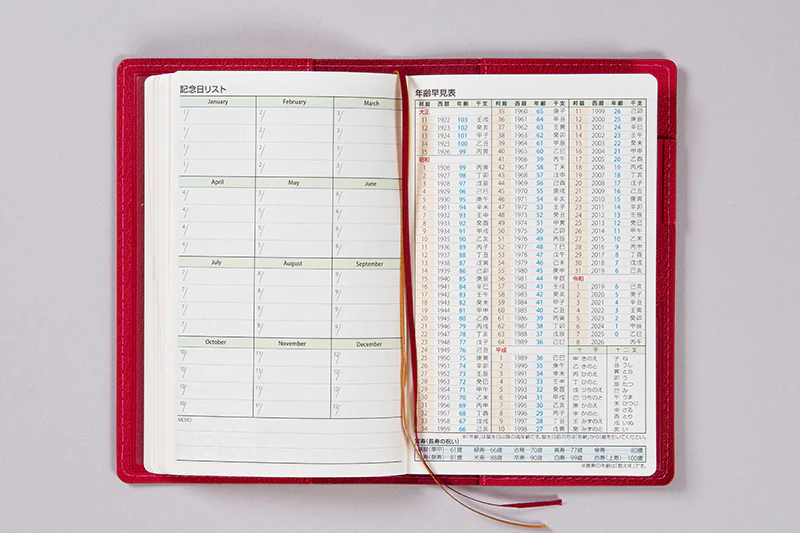 記念日リスト
January February March
1/ 2/ 3/
1/ 2/ 3/
1/ 2/ 3/
1/ 2/ 3/
April May June
4/ 5/ 6/
4/ 5/ 6/
4/ 5/ 6/
4/ 5/ 6/
July August September
7/ 8/ 9/
7/ 8/ 9/
7/ 8/ 9/
7/ 8/ 9/
October November December
10/ 11/ 12/
10/ 11/ 12/
10/ 11/ 12/
10/ 11/ 12/
MEMO
年齢早見表
邦暦 西暦 年齢 干支
大正
11 1922 103 壬戌
12 1923 102 癸亥
13 1924 101 甲子
14 1925 100 乙丑
15 1926 99 丙寅
昭和
1 1926 99 丙寅
2 1927 98 丁卯
3 1928 97 戊辰
4 1929 96 己巳
5 1930 95 庚午
6 1931 94 辛未
7 1932 93 壬申
8 1933 92 癸酉
9 1934 91 甲戌
10 1935 90 乙亥
11 1936 89 丙子
12 1937 88 丁丑
13 1938 87 戊寅
14 1939 86 己卯
15 1940 85 庚辰
16 1941 84 辛巳
17 1942 83 壬午
18 1943 82 癸未
19 1944 81 甲申
20 1945 80 乙酉
21 1946 79 丙戌
22 1947 78 丁亥
23 1948 77 戊子
24 1949 76 己丑
25 1950 75 庚寅
26 1951 74 辛卯
27 1952 73 壬辰
28 1953 72 癸巳
29 1954 71 甲午
30 1955 70 乙未
31 1956 69 丙申
32 1957 68 丁酉
33 1958 67 戊戌
34 1959 66 己亥
邦暦 西暦 年齢 干支
35 1960 65 庚子
36 1961 64 辛丑
37 1962 63 壬寅
38 1963 62 癸卯
39 1964 61 甲辰
40 1965 60 乙巳
41 1966 59 丙午
42 1967 58 丁未
43 1968 57 戊申
44 1969 56 己酉
45 1970 55 庚戌
46 1971 54 辛亥
47 1972 53 壬子
48 1973 52 癸丑
49 1974 51 甲寅
50 1975 50 乙卯
51 1976 49 丙辰
52 1977 48 丁巳
53 1978 47 戊午
54 1979 46 己未
55 1980 45 庚申
56 1981 44 辛酉
57 1982 43 壬戌
58 1983 42 癸亥
59 1984 41 甲子
60 1985 40 乙丑
61 1986 39 丙寅
62 1987 38 丁卯
63 1988 37 戊辰
64 1989 36 己巳
平成
1 1989 36 己巳
2 1990 35 庚午
3 1991 34 辛未
4 1992 33 壬申
5 1993 32 癸酉
6 1994 31 甲戌
7 1995 30 乙亥
8 1996 29 丙子
9 1997 28 丁丑
10 1998 27 戊寅
邦暦 西暦 年齢 干支
11 1999 26 己卯
12 2000 25 庚辰
13 2001 24 辛巳
14 2002 23 壬午
15 2003 22 癸未
16 2004 21 甲申
17 2005 20 乙酉
18 2006 19 丙戌
19 2007 18 丁亥
20 2008 17 戊子
21 2009 16 己丑
22 2010 15 庚寅
23 2011 14 辛卯
24 2012 13 壬辰
25 2013 12 癸巳
26 2014 11 甲午
27 2015 10 乙未
28 2016 9 丙申
29 2017 8 丁酉
30 2018 7 戊戌
31 2019 6 己亥
令和
1 2019 6 己亥
2 2020 5 庚子
3 2021 4 辛丑
4 2022 3 壬寅
5 2023 2 癸卯
6 2024 1 甲辰
7 2025 0 乙巳
8 2026 丙午
十干 十二支
甲 きのえ 子 ね
乙 きのと 丑 うし
丙 ひのえ 寅 とら
丁 ひのと 卯 う
戊 つちのえ 辰 たつ
己 つちのと 巳 み
庚 かのえ 午 うま
辛 かのと 未 ひつじ
壬 みずのえ 申 さる
癸 みずのと 酉 とり
戌 いぬ
亥 い
※「年齢」は誕生日以降の満年齢です。誕生日前の方は「年齢」から1歳を引いてください。
賀寿(長寿の祝い)
還暦(華甲)―61歳 緑寿―66歳 古稀―70歳 喜寿―77歳 傘寿―80歳
半寿(盤寿)―81歳 米寿―88歳 卒寿―90歳 白寿―99歳 百寿(上寿)―100歳
※賀寿の年齢は「数え年」です。